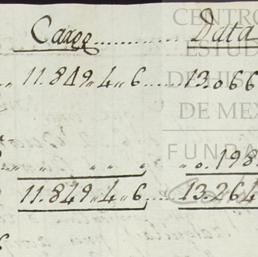 Cargo .......... Data
11.849,,4,,6 ...... 13.066
,, ,, ,, ,, 0.198
11.849,,4,,6 13.264
6
CENTRO
ESTUD
DE HIS
DE MEX
FUNDA